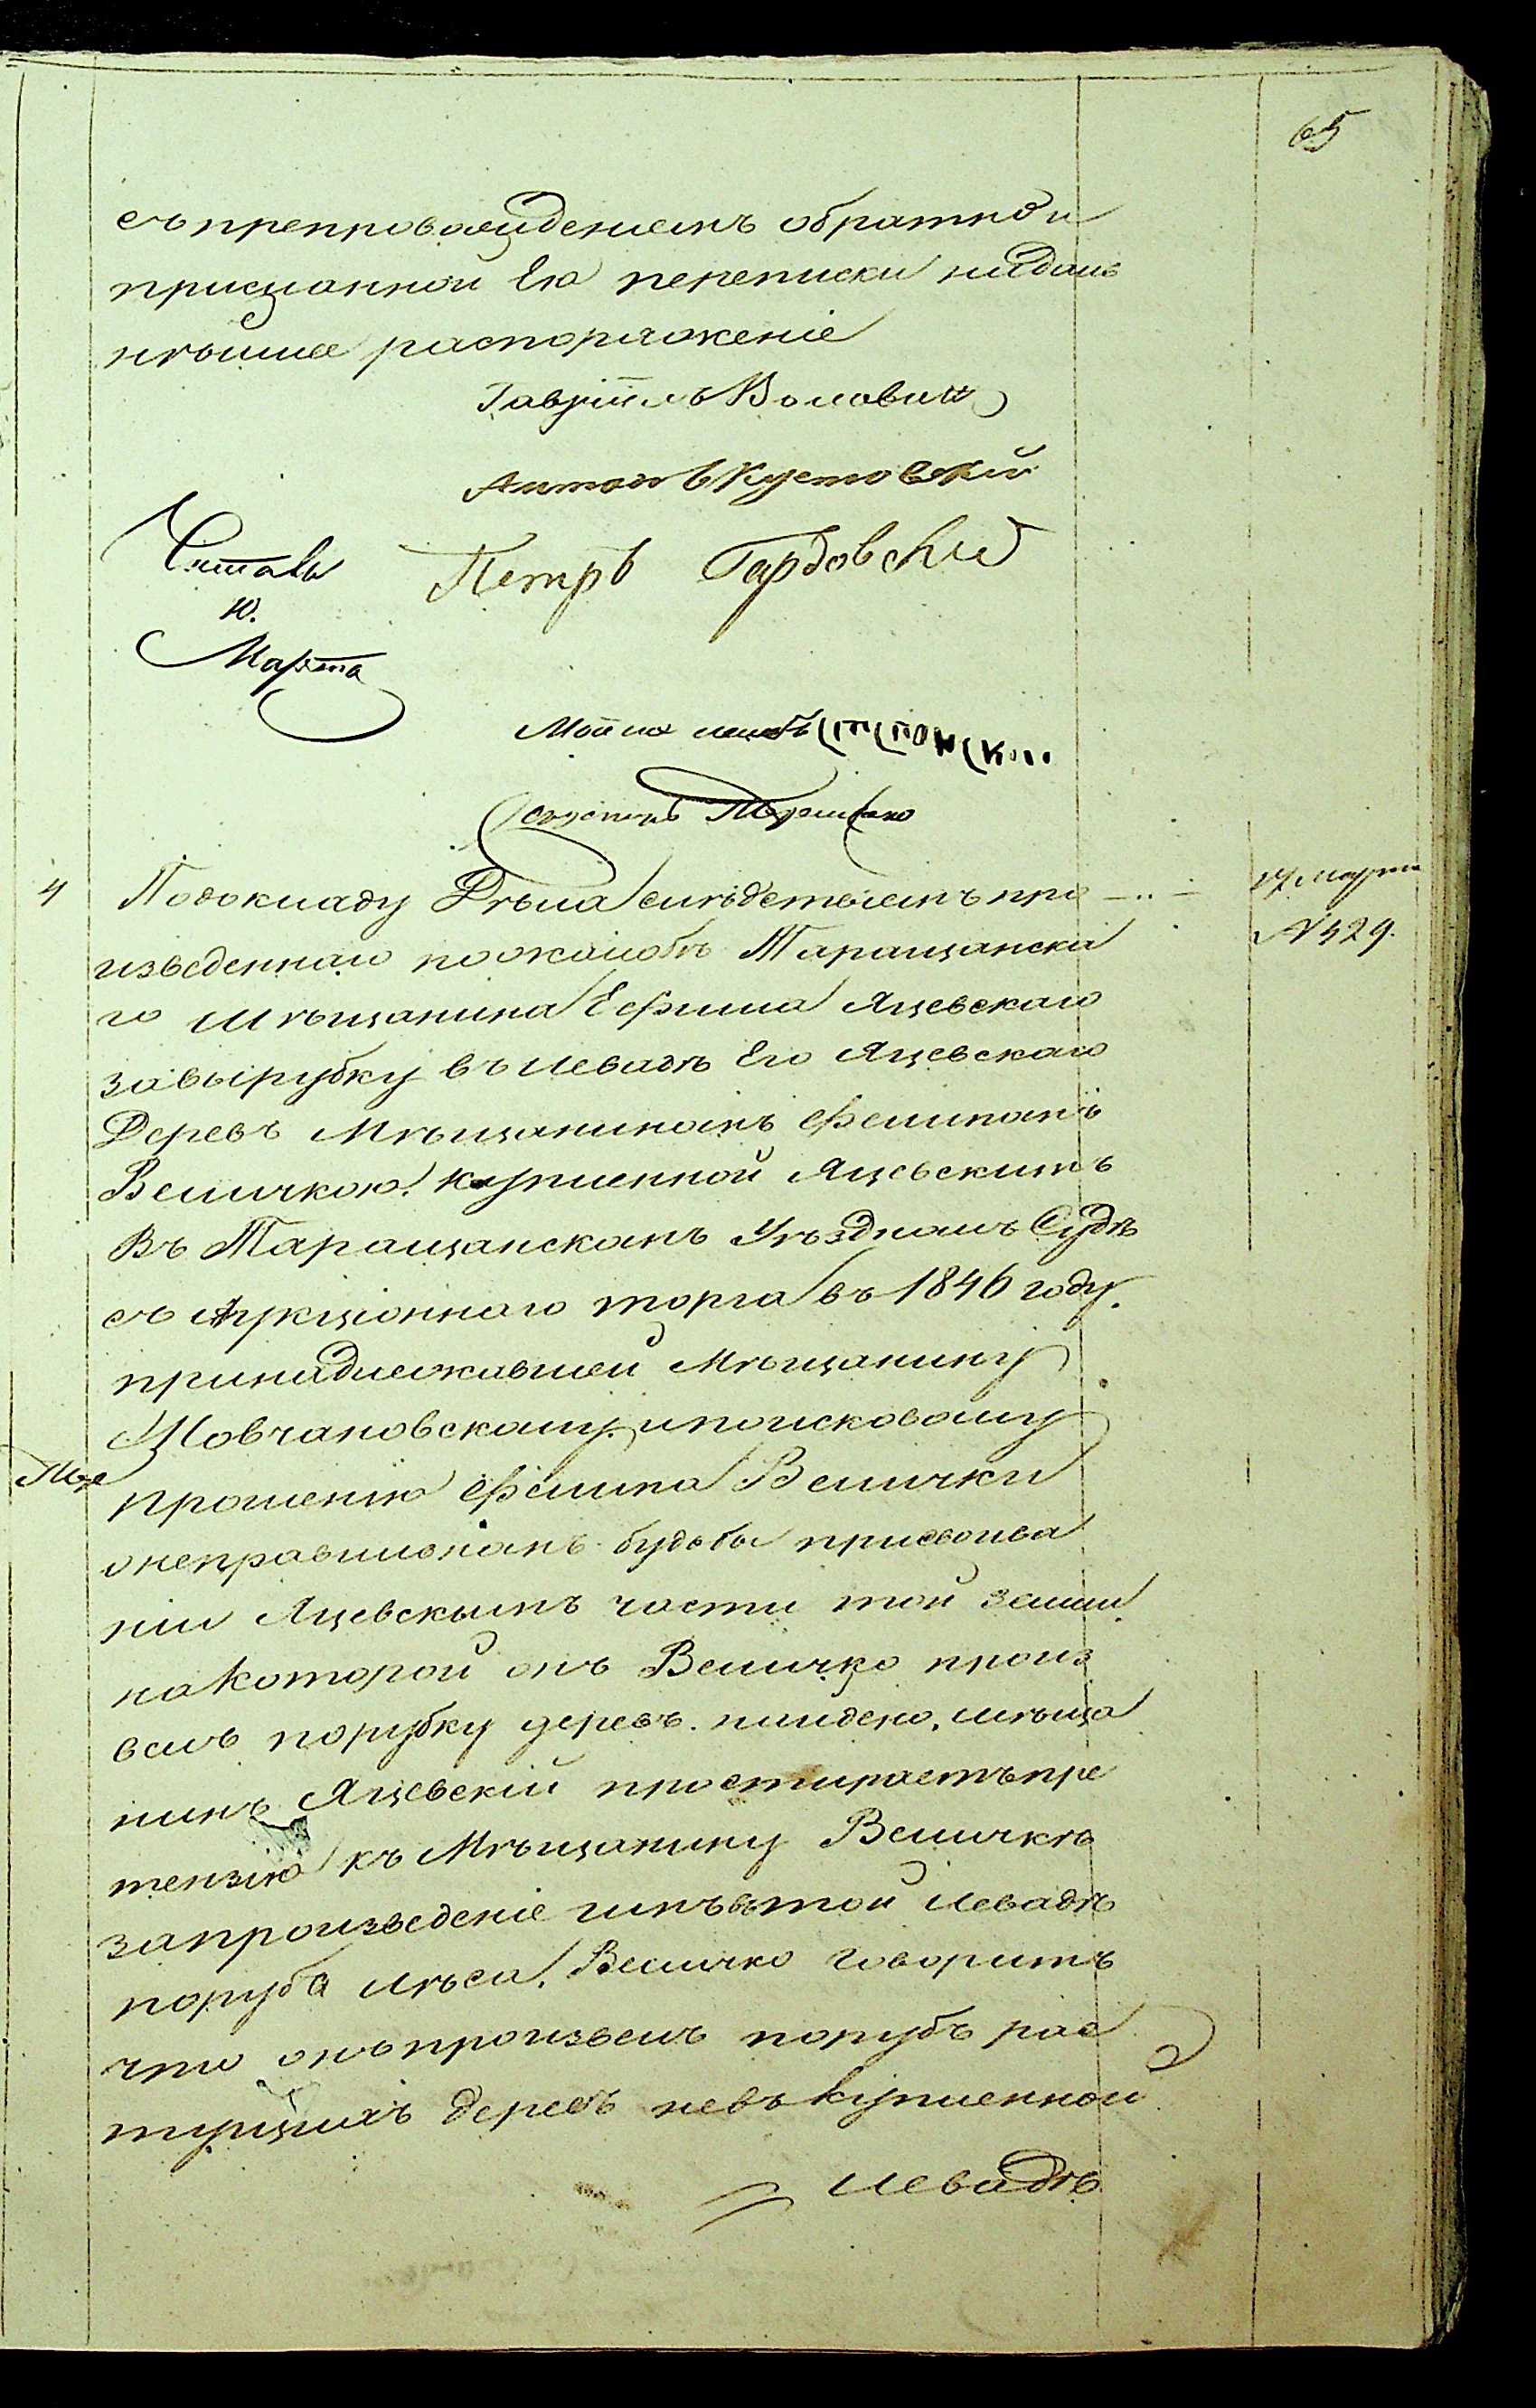 65
съ препровожденіемъ обратно и
присланной Ею переписки надаль
нѣйшее распоряженіе
Гавріилъ Воловик
Антонъ Кустовскій
Читалъ Петръ Гардовскій
10.
Марта
4 Подокладу Дѣла слѣдствіемъ про 17 Марта
N 429.
изведеннаго пожалобѣ Таращанска
го Мѣщанина Ефима Яцевскаго
завырубку въ левадѣ Его Яцевскаго
Деревъ Мѣщаниномъ Филипомъ
Величкою. купленной Яцевскимъ
Въ Таращанскомъ Уѣздномъ Судѣ
съ Аукціоннаго торга въ 1846 году.
принадлежавшей Мѣщанину
Мовчановскому. ипоисковому
прошенію Филипа Велички
онеправильномъ будьтобы присвоива
ніи Яцевскымъ части той земли.
накоторой онъ Величко произ
велъ порубку деревъ. найдено. мѣща
нинъ Яцевскій простираетъ пре
тензію къ Мѣщанину Величкѣ
запроизведеніе имъ въ той левадѣ
поруба лѣса. Величко говоритъ
что онъ произвелъ порубъ рас
тущихъ деревъ невъ купленной
левадѣ